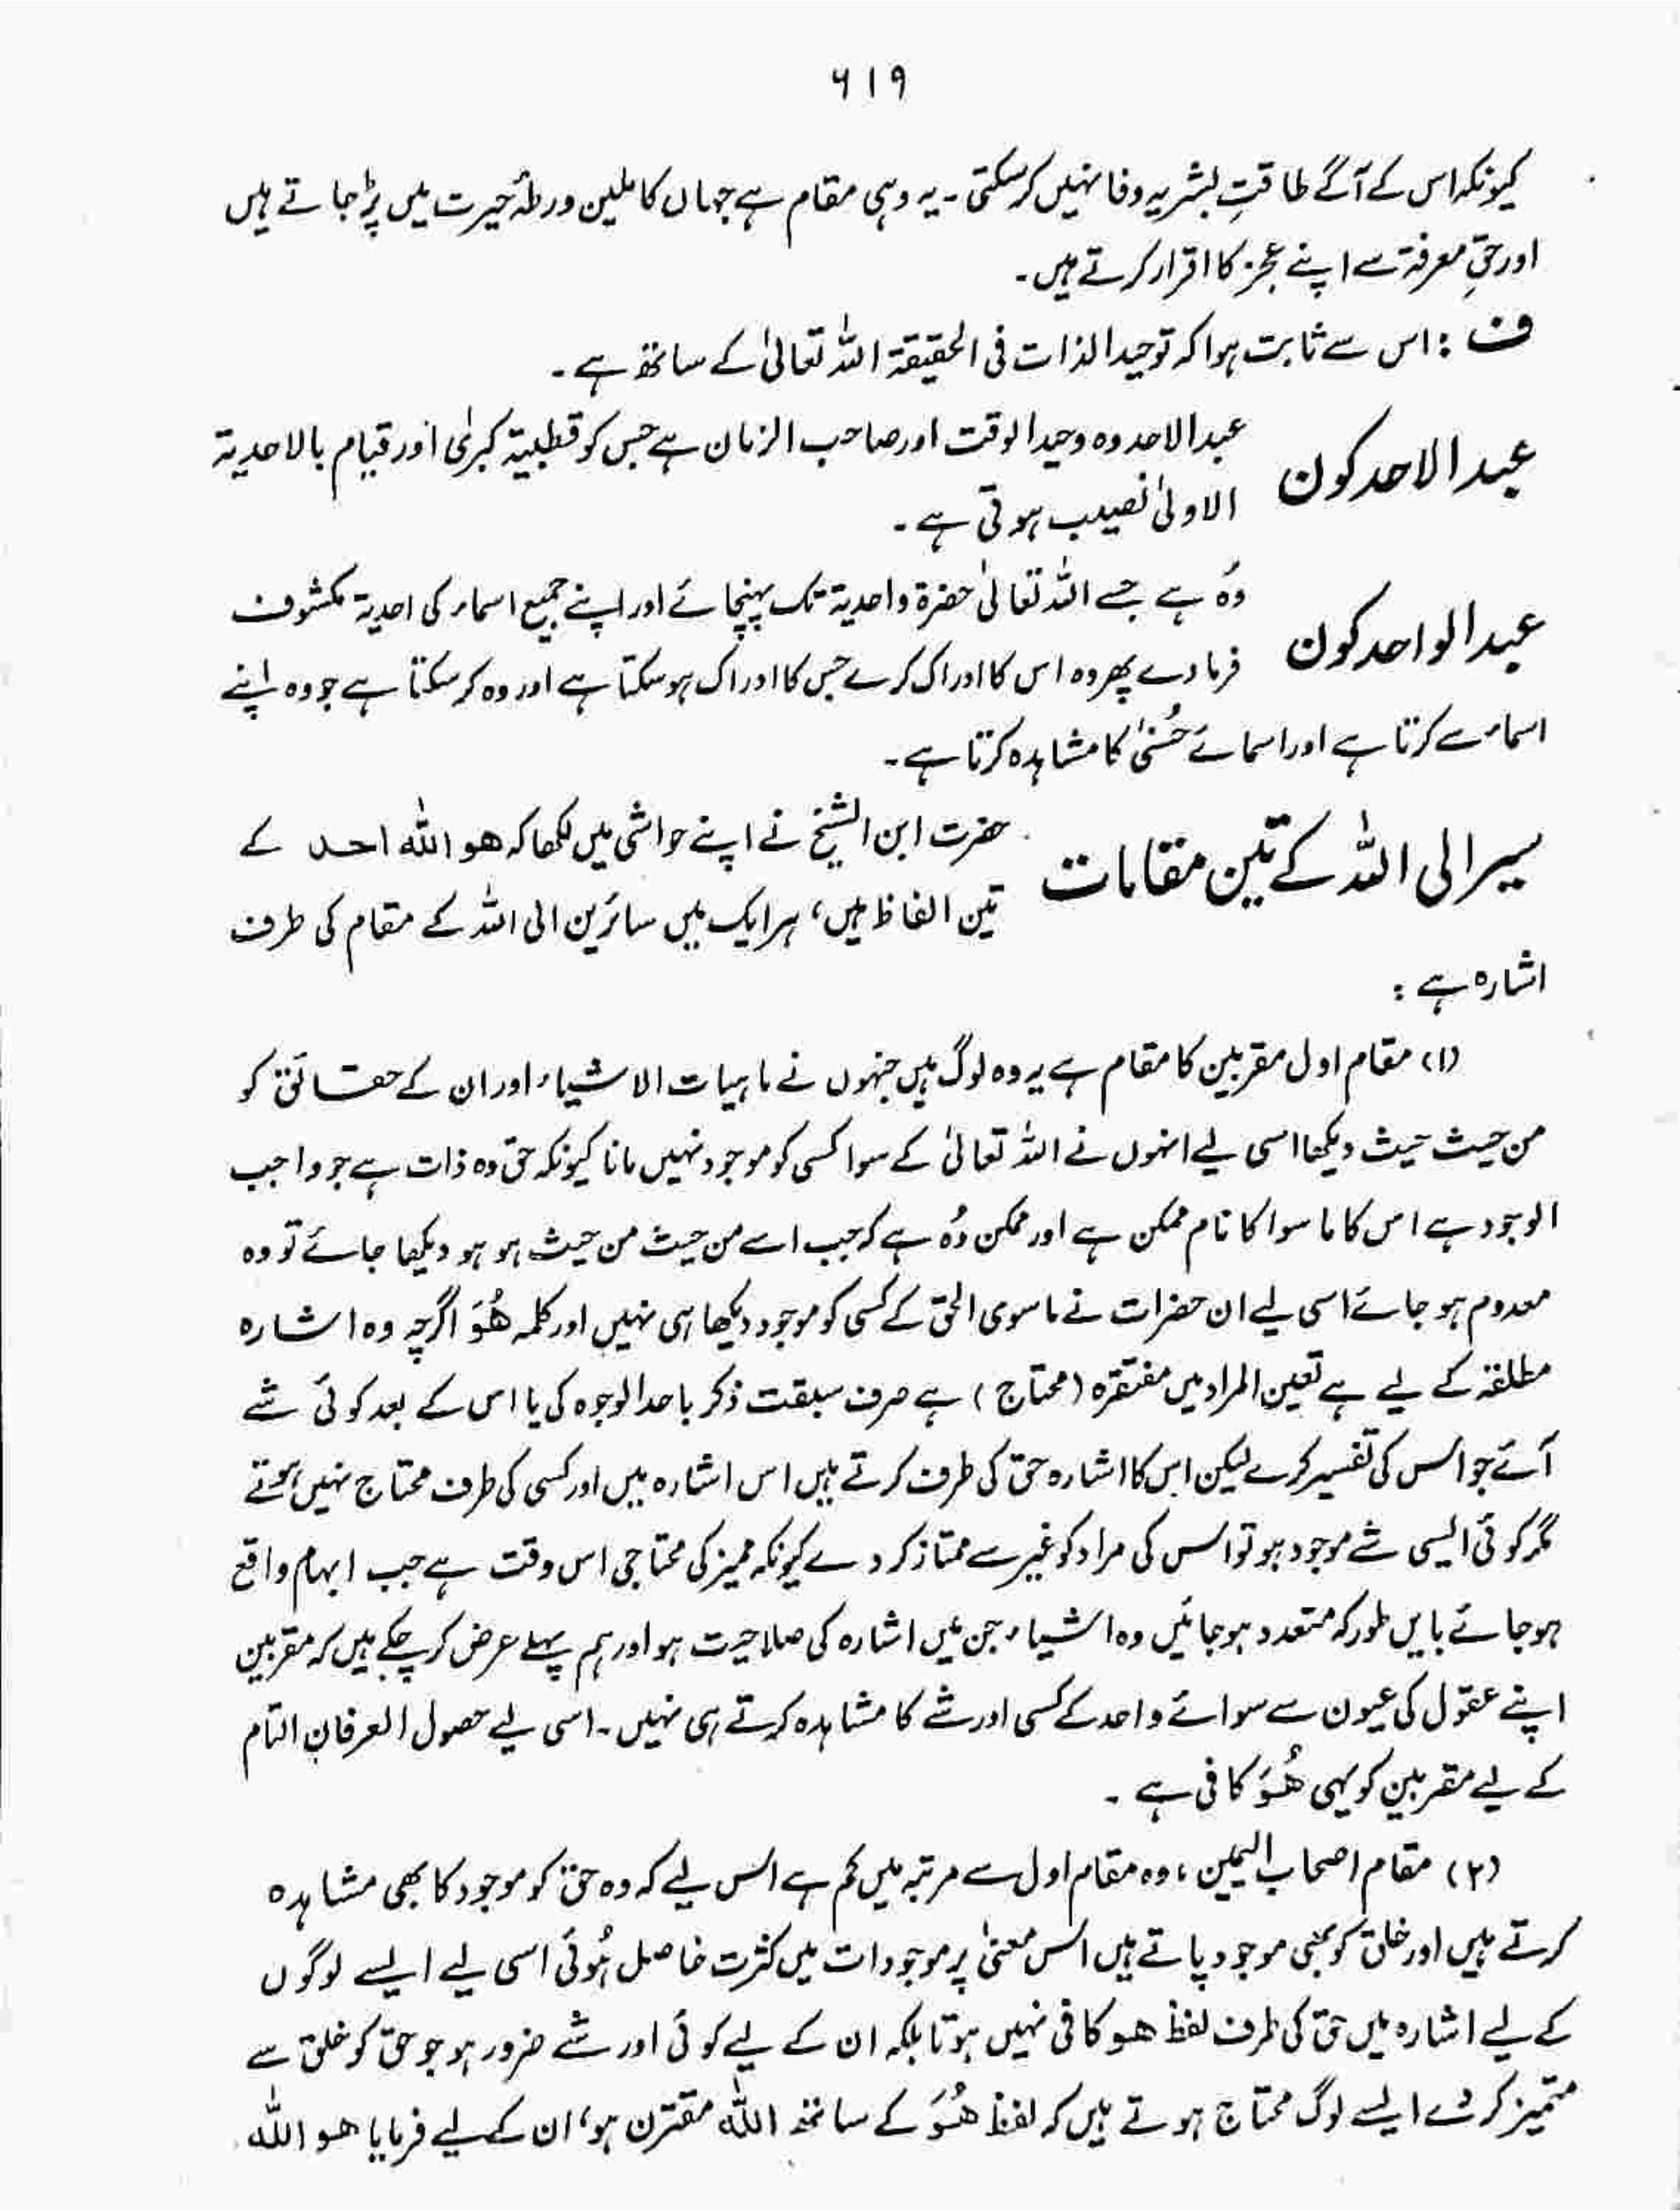 ۶۱۹
کیونکہ اس کے آگے طاقتِ بشریہ وفا نہیں کرسکتی۔ یہ وہی مقام ہے جہاں کاملین ورطۂ حیرت میں پڑجاتے ہیں
اور حقِ معرفۃ سے اپنے عجز کا اقرار کرتے ہیں۔
ف : اس سے ثابت ہوا کہ توحید الذات فی الحقیقۃ اللہ تعالیٰ کے ساتھ ہے۔
عبد الاحد کون عبد الاحد وہ وحید الوقت اور صاحب الزمان ہے جس کو قطبیۃ کبریٰ اور قیام بالاحدیۃ
الاولیٰ نصیب ہوتی ہے۔
عبد الواحد کون وُہ ہے جسے اللہ تعالیٰ حضرۃ واحدیۃ تک پہنچائے اور اپنے جمیع اسماء کی احدیۃ مکشوف
فرمادے پھر وہ اس کا ادراک کرے جس کا ادراک ہوسکتا ہے اور وہ کرسکتا ہے جو وہ اپنے
اسماء سے کرتا ہے اور اسمائے حُسنیٰ کا مشاہدہ کرتا ہے۔
سیر الی اللہ کے تین مقامات حضرت ابن الشیخ نے اپنے حواشی میں لکھا کہ ھو اللہ احد کے
تین الفاظ ہیں، ہر ایک میں سائرین الی اللہ کے مقام کی طرف
اشارہ ہے :
(۱) مقام اول مقربین کا مقام ہے یہ وہ لوگ ہیں جنہوں نے ماہیات الاشیاء اور ان کے حقائق کو
من حیث حیث دیکھا اسی لیے انہوں نے اللہ تعالیٰ کے سوا کسی کو موجود نہیں مانا کیونکہ حق وہ ذات ہے جو واجب
الوجود ہے اس کا ماسوا کا نام ممکن ہے اور ممکن وُہ ہے کہ جب اسے من حیث من حیث ہو ہو دیکھا جائے تو وہ
معدوم ہو جائے اسی لیے ان حضرات نے ماسوی الحق کے کسی کو موجود دیکھا ہی نہیں اور کلمہ ھُوَ اگرچہ وہ اشارہ
مطلقۃ کے لیے ہے تعین المراد میں مفتقرہ (محتاج) ہے صرف سبقت ذکر باحد الوجوہ کی یا اس کے بعد کوئی شے
آئے جو اس کی تفسیر کرے لیکن اس کا اشارہ حق کی طرف کرتے ہیں اس اشارہ میں اور کسی کی طرف محتاج نہیں ہوتے
مگر کوئی ایسی شے موجود ہو تو اس کی مراد کو غیر سے ممتاز کر دے کیونکہ ممیز کی محتاجی اس وقت ہے جب ابہام واقع
ہوجائے بایں طور کہ متعدد ہوجائیں وہ اشیاء جن میں اشارہ کی صلاحیت ہو اور ہم پہلے عرض کرچکے ہیں کہ مقربین
اپنے عقول کی عیون سے سوائے واحد کے کسی اور شے کا مشاہدہ کرتے ہی نہیں۔ اسی لیے حصول العرفان التام
کے لیے مقربین کو یہی ھُوَ کافی ہے۔
(۲) مقام اصحاب الیمین، وہ مقام اول سے مرتبہ میں کم ہے اس لیے کہ وہ حق کو موجود کا بھی مشاہدہ
کرتے ہیں اور خلق کو بھی موجود پاتے ہیں اس معنیٰ پر موجودات میں کثرت حاصل ہُوئی اسی لیے ایسے لوگوں
کے لیے اشارہ میں حق کی طرف لفظ ھو کافی نہیں ہوتا بلکہ ان کے لیے کوئی اور شے ضرور ہو جو حق کو خلق سے
متمیز کر دے ایسے لوگ محتاج ہوتے ہیں کہ لفظ ھُوَ کے ساتھ اللہ مقترن ہو، ان کے لیے فرمایا ھو اللہ